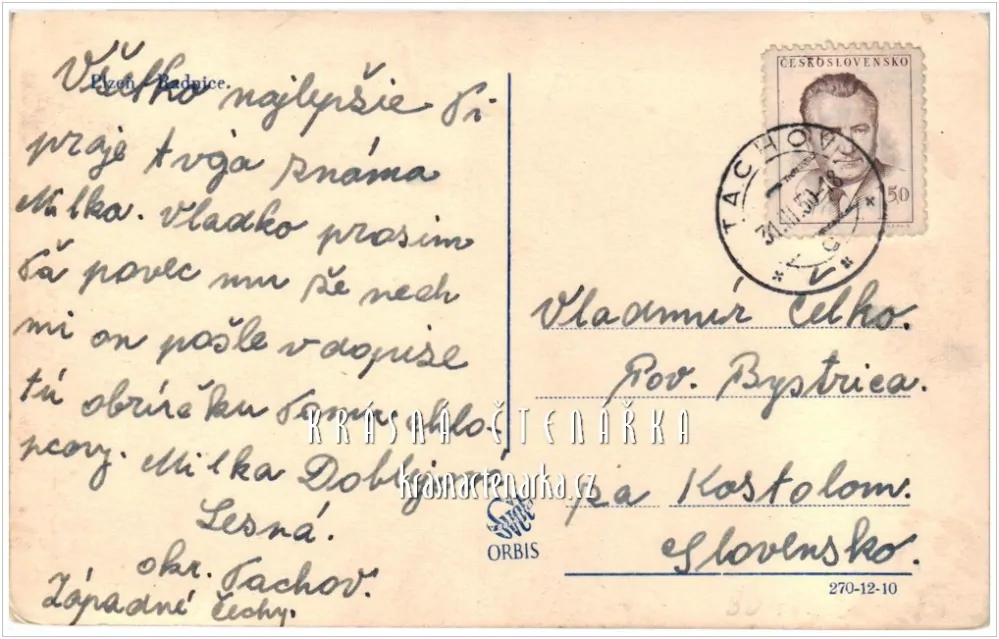 Plzeň - Radnice.
Všetko najlepšie Ti
praje tvoja známa
Milka. Vladko prosim
Ťa povec mu že nech
mi on pošle v dopise
tú obrázčku tomu chlo-
pcovy. Milka
Lesná.
okr. Tachov.
Západné Čechy.
ČESKOSLOVENSKO
50
TACHOV
Vladimír Celko.
Pov. Bystrica.
za Kostolom.
Slovensko.
KRÁSNÁ ČTENÁŘKA
krasnactenarka.cz
ORBIS
270-12-10